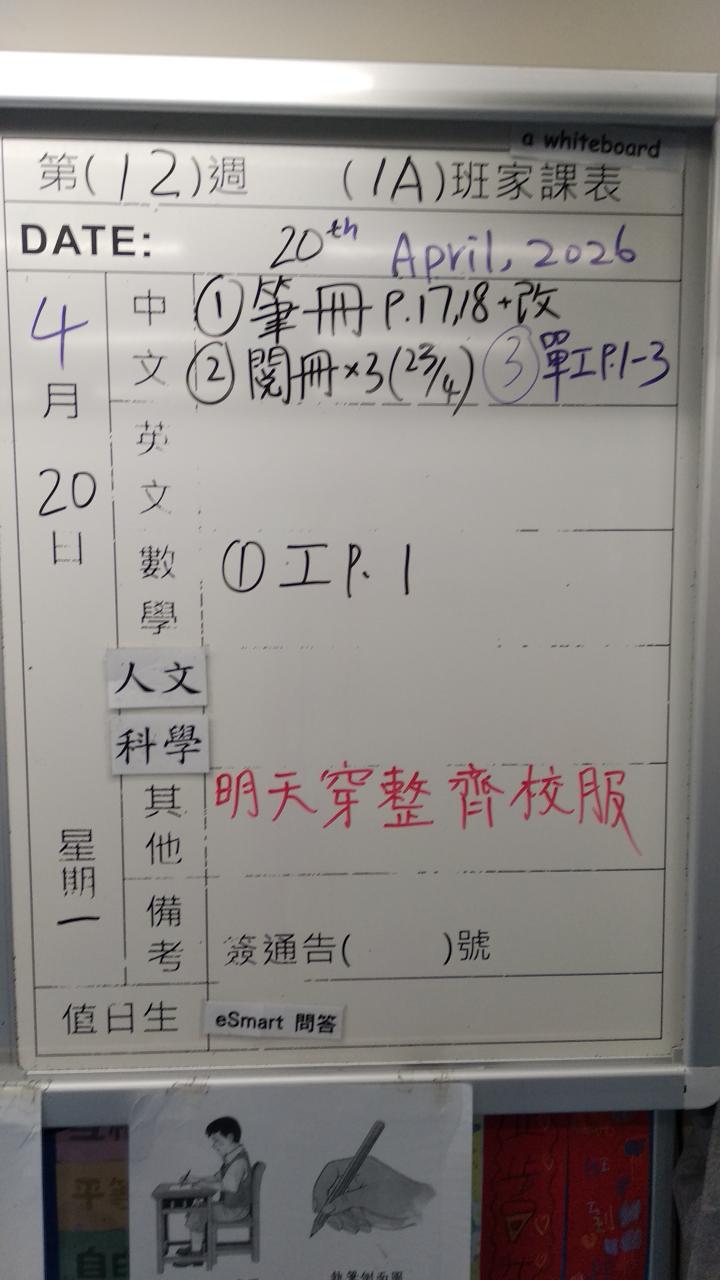 a whiteboard
第(12)週 (1A)班家課表
DATE: 20th April, 2026
4月20日 星期一
中文 ①筆冊 P.17,18+改
②閱冊×3(23/4) ③單工P.1-3
英文
數學 ①工 P. 1
人文
科學
其他 明天穿整齊校服
備考 簽通告( )號
值日生 eSmart 問答
平等